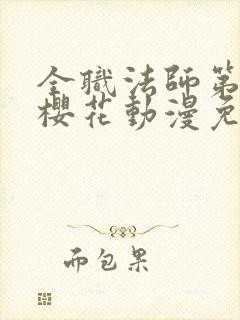 全職法師第
櫻花動漫免
而包果